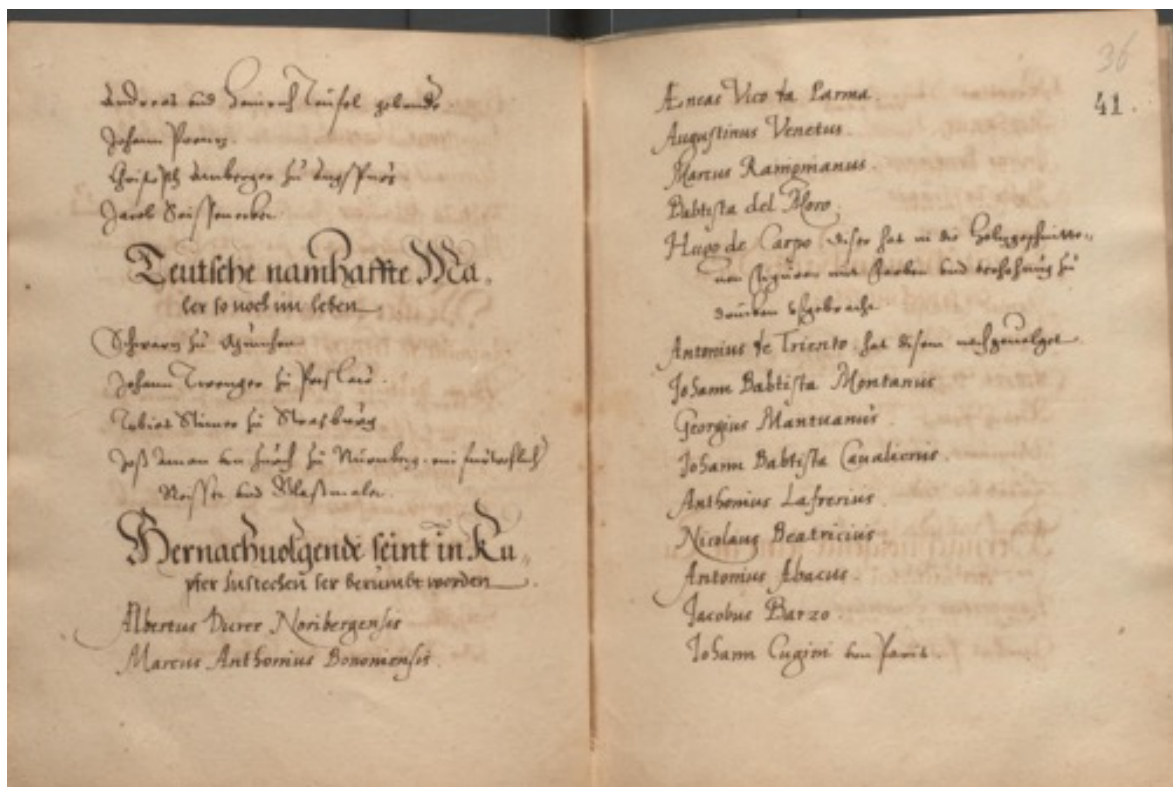 Andreas und Heinrich Teufel gebrueder
Johann
Christoph Amberger zu Augspurg
Jacob Seissenecker
Teutsche namhaffte Ma„
ler so noch im leben
Schwarz zu München
Johann Twenger zu Preslaw
Tobias Stimer zu Strasburg
Joß Aman von Zürch zu Nürmberg. ein fürtreflich
Reisser und Glaßmaler.
Hernachuolgende seint in Ku„
pfer zustechen ser berümbt worden
Albertus Durer Noribergensis
Marcus Anthonius Bononiensis.
36
41.
Æneas Vico da Parma.
Augustinus Venetus.
Marcus Rauignanus.
Babtista del Moro.
Hugo de Carpo diser hat in die Holzgeschnitte„
nen figuren mit farben und erhehung zu
drucken ufgebracht
Antonius de Triento, hat disem nachgeuolget
Johann Babtista Montanus
Georgius Mantuanus.
Johann Babtista Caualierius.
Anthonius Lafrerius.
Nicolaus Beatricius
Antonius Abacus
Jacobus Barzo.
Johann Cugini von Paris.